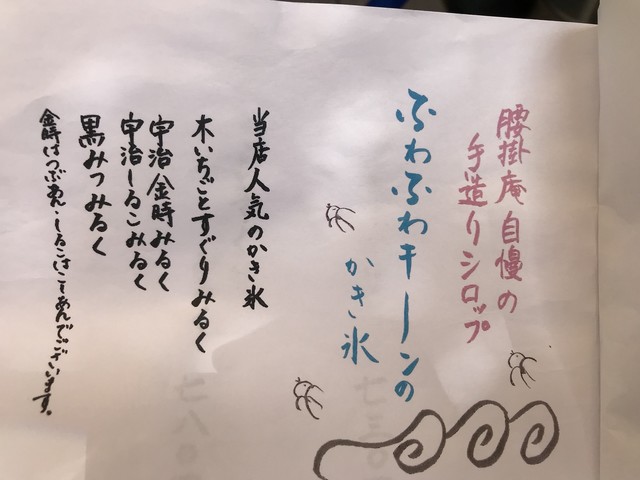 腰掛庵自慢の
手造りシロップ
ふわふわキーンの
かき氷
当店人気のかき氷
木いちごとすぐりみるく
宇治金時みるく
宇治しるこみるく
黒みつみるく
金時はつぶあん・しるこはこしあんでございます。
七三〇
七八〇